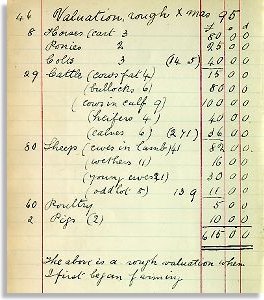 46 Valuation, rough Xmas 95
£ s d
8 Horses (cart 3 80 0 0
Ponies 2 25 0 0
Colts 3 40 0 0
29 Cattle (cows fat 4) 15 0 0
(bullocks 6) 80 0 0
(cows in calf 9) 100 0 0
(heifers 4) 40 0 0
(calves 6) 36 0 0
80 Sheep (ewes in lamb) 41 82 0 0
(wethers 11) 16 0 0
(young ewes 21) 30 0 0
(odd lot 5) 11 0 0
60 Poultry 5 0 0
2 Pigs (2) 10 0 0
£615 0 0
The above is a rough valuation when
I first began farming